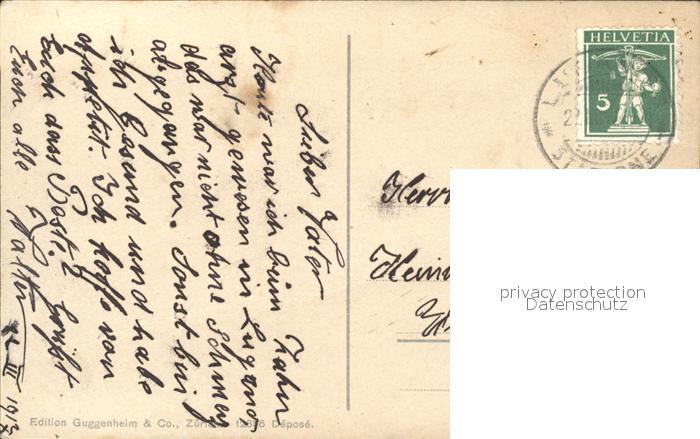 Lieber Vater
Heute war ich beim Zahn
arzt gewesen in Lugano,
das war nicht ohne Schmerz
abgegangen. Sonst bin
ich Gesund und habe
Appetit. Ich hoffe von
Euch das Beste. Es grüßt
Euch alle Walter
III 1913
HELVETIA
5
Herrn
Edition Guggenheim & Co., Zürich 12686 Déposé.
privacy protection
Datenschutz